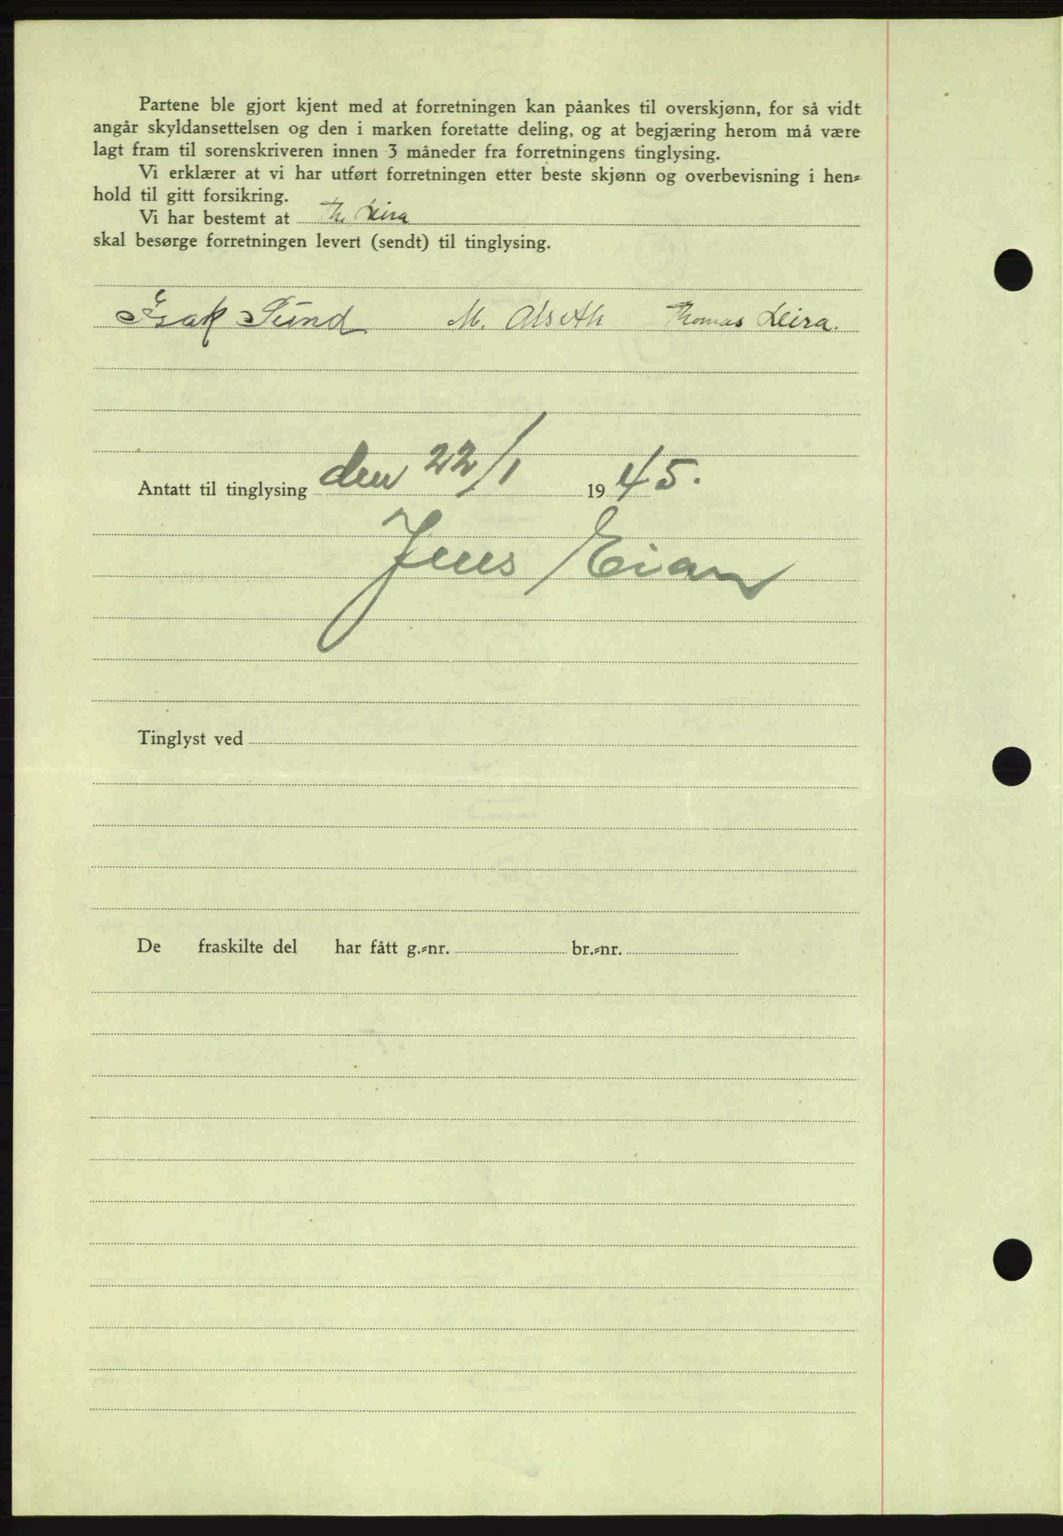 Partene ble gjort kjent med at forretningen kan påankes til overskjønn, for så vidt
angår skyldansettelsen og den i marken foretatte deling, og at begjæring herom må være
lagt fram til sorenskriveren innen 3 måneder fra forretningens tinglysing.
Vi erklærer at vi har utført forretningen etter beste skjønn og overbevisning i hen=
hold til gitt forsikring.
Vi har bestemt at Th. Leira
skal besørge forretningen levert (sendt) til tinglysing.
Isak Sund M. Alseth Thomas Leira.
Antatt til tinglysing den 22/1 1945.
Jens Eian
Tinglyst ved
De fraskilte del har fått g.=nr. br.=nr.